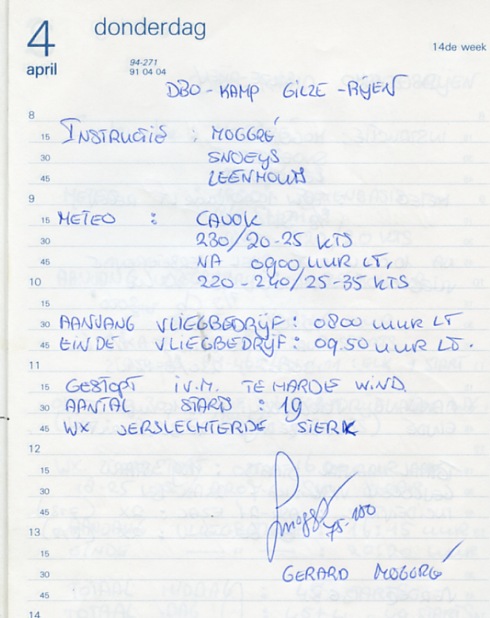 4 donderdag
14de week
april
94-271
91 04 04
DBO - KAMP GILZE - RIJEN
8
15 INSTRUCTIE : MOGGRÉ
30 SNOEYS
45 LEENHOUTS
9
15 METEO : CAVOK
30 230/20-25 KTS
45 NA 0900 UUR LT,
10 220-240/25-35 KTS
15
30 AANVANG VLIEGBEDRIJF : 0800 UUR LT
45 EINDE VLIEGBEDRIJF : 09.50 UUR LT.
11
15 GESTOPT I.V.M. TE HARDE WIND.
30 AANTAL STARTS : 19
45 WX VERSLECHTERDE STERK
12
15
30
45
75-100
13
15
30 GERARD MOGGRÉ
45
14